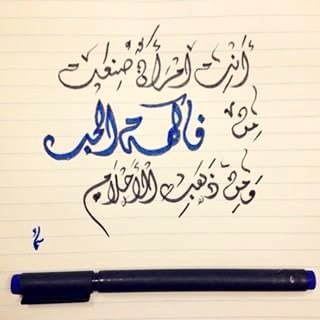 أنتِ امرأةٌ صُنِعَت
مِن فاكهة الحب
وَمِن ذَهَبِ الأَحلامِ